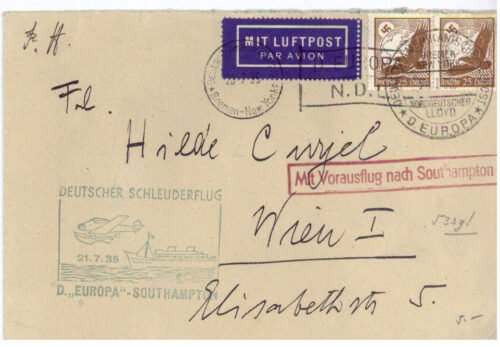 p. A.
MIT LUFTPOST
PAR AVION
25 25
Bremen-New York
20.7.35
EUROPA
N.D.L.
NORDDEUTSCHER
LLOYD
D. EUROPA
Frl.
Hilde Curjel
Mit Vorausflug nach Southampton
Wien I
Elisabethstr 5.
DEUTSCHER SCHLEUDERFLUG
21.7.35
D. „EUROPA"-SOUTHAMPTON
5.-